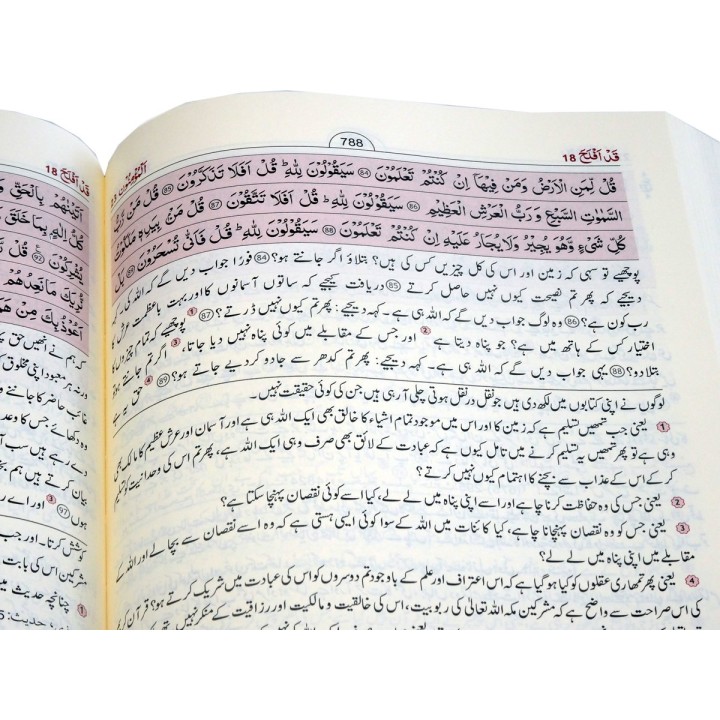 قَدْ اَفْلَحَ 18
788
اَلْمُؤْمِنُوْن
قُلْ لِّمَنِ الْاَرْضُ وَمَنْ فِيْهَآ اِنْ كُنْتُمْ تَعْلَمُوْنَ 84 سَيَقُوْلُوْنَ لِلّٰهِ ؕ قُلْ اَفَلَا تَذَكَّرُوْنَ 85 قُلْ مَنْ رَّبُّ
السَّمٰوٰتِ السَّبْعِ وَ رَبُّ الْعَرْشِ الْعَظِيْمِ 86 سَيَقُوْلُوْنَ لِلّٰهِ ؕ قُلْ اَفَلَا تَتَّقُوْنَ 87 قُلْ مَنْۢ بِيَدِهٖ مَلَكُوْتُ
كُلِّ شَيْءٍ وَّهُوَ يُجِيْرُ وَلَا يُجَارُ عَلَيْهِ اِنْ كُنْتُمْ تَعْلَمُوْنَ 88 سَيَقُوْلُوْنَ لِلّٰهِ ؕ قُلْ فَاَنّٰى تُسْحَرُوْنَ 89 بَلْ
پوچھیے تو سہی کہ زمین اور اس کی کل چیزیں کس کی ہیں؟ بتلاؤ اگر جانتے ہو؟ 84 فوراً جواب دیں گے کہ اللہ کی،
دیجیے کہ پھر تم نصیحت کیوں نہیں حاصل کرتے 85 دریافت کیجیے کہ ساتوں آسمانوں کا اور بہت باعظمت عرش کا
رب کون ہے؟ 86 وہ لوگ جواب دیں گے کہ اللہ ہی ہے۔ کہہ دیجیے: پھر تم کیوں نہیں ڈرتے؟ 1 87 پوچھیے کہ تمام چیزوں کا
اختیار کس کے ہاتھ میں ہے؟ جو پناہ دیتا ہے 2 اور جس کے مقابلے میں کوئی پناہ نہیں دیا جاتا، 3 اگر تم جانتے ہو تو
بتلا دو؟ 88 یہی جواب دیں گے کہ اللہ ہی ہے۔ کہہ دیجیے: پھر تم کدھر سے جادو کر دیے جاتے ہو؟ 4 89 حق یہ ہے
لوگوں نے اپنی کتابوں میں لکھ دی ہیں جو نقل در نقل ہوتی چلی آ رہی ہیں جن کی کوئی حقیقت نہیں۔
1 یعنی جب تمھیں تسلیم ہے کہ زمین کا اور اس میں موجود تمام اشیاء کا خالق بھی ایک اللہ ہی ہے اور آسمان اور عرش عظیم کا مالک بھی
وہی ہے تو پھر تمھیں یہ تسلیم کرنے میں تامل کیوں ہے کہ عبادت کے لائق بھی صرف وہی ایک اللہ ہے، پھر تم اس کی وحدانیت کو تسلیم
کر کے اس کے عذاب سے بچنے کا اہتمام کیوں نہیں کرتے؟
2 یعنی جس کی وہ حفاظت کرنا چاہے اور اسے اپنی پناہ میں لے لے، کیا اسے کوئی نقصان پہنچا سکتا ہے؟
3 یعنی جس کو وہ نقصان پہنچانا چاہے، کیا کائنات میں اللہ کے سوا کوئی ایسی ہستی ہے کہ وہ اسے نقصان سے بچا لے اور اللہ کے
مقابلے میں اپنی پناہ میں لے لے؟
4 یعنی پھر تمھاری عقلوں کو کیا ہو گیا ہے کہ اس اعتراف اور علم کے باوجود تم دوسروں کو اس کی عبادت میں شریک کرتے ہو؟ قرآن کریم
کی اس صراحت سے واضح ہے کہ مشرکین مکہ اللہ تعالیٰ کی ربوبیت، اس کی خالقیت و مالکیت اور رزاقیت کے منکر نہیں تھے
قَدْ اَفْلَحَ 18
اَتَيْنٰهُمْ بِالْحَقِّ وَ
كُلُّ اِلٰهٍۢ بِمَا خَلَقَ وَ
يُشْرِكُوْنَ 92
تُرِيَنِّيْ مَا يُوْعَدُ
اَعُوْذُ بِكَ مِنْ هَمَ
کہ ہم نے انھیں حق پہ
ورنہ ہر معبود اپنی مخلوق کو
غائب حاضر کا جاننے و
وہ دکھائے جس کا وعدہ
دے رہے ہیں سب آپ
بیان کرتے ہیں ہم بخو
ہوں 97 اور اے رب
کوشش کرتا۔ اور جب
مشرکین اس کی بابت
1 چنانچہ حدیث میں
حدیث: 5